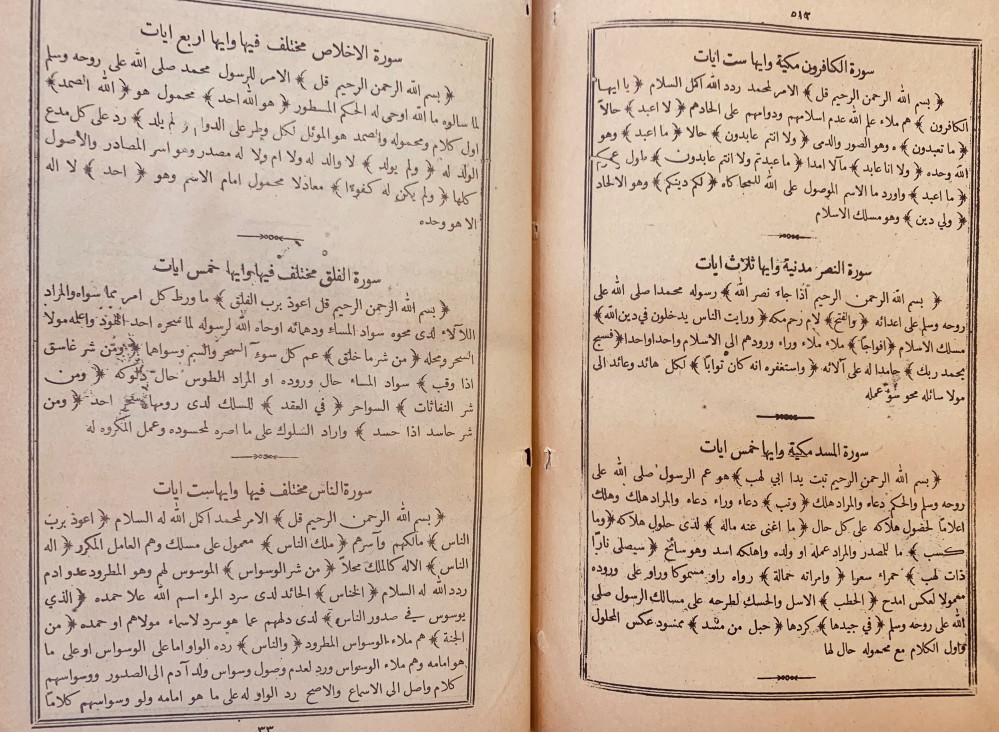 ٥١٣
سورة الكافرون مكية وايها ست ايات
﴿ بسم الله الرحمن الرحيم قل ﴾ الامر لمحمد ردد الله اكمل السلام ﴿ يا ايها
الكافرون ﴾ هم ملاء علم الله عدم اسلامهم ودوامهم على الحادهم ﴿ لا اعبد ﴾ حالاً
﴿ ما تعبدون ﴾ وهو الصور والدمى ﴿ ولا انتم عابدون ﴾ حالا ﴿ ما اعبد ﴾ وهو
الله وحده ﴿ ولا انا عابد ﴾ مآلا امدا ﴿ ما عبدتم ولا انتم عابدون ﴾ طول عمركم
﴿ ما اعبد ﴾ واورد ما الاسم الموصول على الله للمحاكاه ﴿ لكم دينكم ﴾ وهو الالحاد
﴿ ولي دين ﴾ وهو مسلك الاسلام
سورة النصر مدنية وايها ثلاث ايات
﴿ بسم الله الرحمن الرحيم اذا جاء نصر الله ﴾ رسوله محمدا صلى الله على
روحه وسلم على اعدائه ﴿ والفتح ﴾ لام رحم مكه ﴿ ورايت الناس يدخلون في دين الله ﴾
مسلك الاسلام ﴿ افواجاً ﴾ ملاء ملاء وراء ورودهم الى الاسلام واحدا واحدا ﴿ فسبح
بحمد ربك ﴾ حامدا له على آلائه ﴿ واستغفره انه كان تواباً ﴾ لكل هائد وعائد الى
مولا سائله محو سوء عمله
سورة المسد مكية وايها خمس ايات
﴿ بسم الله الرحمن الرحيم تبت يدا ابي لهب ﴾ هو عم الرسول صلى الله على
روحه وسلم والحكم دعاء والمراد هلك ﴿ وتب ﴾ دعاء وراء دعاء والمراد هلك وهلك
اعلامًا لحصول هلاكه على كل حال ﴿ ما اغنى عنه ماله ﴾ لدى حلول هلاكه ﴿ وما
كسب ﴾ ما للمصدر والمراد عمله او ولده واهلكه اسد وهو سائح ﴿ سيصلى نارًا
ذات لهب ﴾ حمراء سعرا ﴿ وامراته حمالة ﴾ رواه راو مسموكا وراو على وروده
معمولا لعكس امدح ﴿ الحطب ﴾ الاسل والحسك لطرحه على مسالك الرسول صلى
الله على روحه وسلم ﴿ في جيدها ﴾ كردها ﴿ حبل من مسد ﴾ ممسود عكس المحلول
واول الكلام مع محموله حال لها
سورة الاخلاص مختلف فيها وايها اربع ايات
﴿ بسم الله الرحمن الرحيم قل ﴾ الامر للرسول محمد صلى الله على روحه وسلم
لما سالوه ما الله اوحى له الحكم المسطور ﴿ هو الله احد ﴾ محمول هو ﴿ الله الصمد ﴾
اول كلام ومحموله والصمد هو الموئل لكل وطر على الدوام ﴿ لم يلد ﴾ رد على كل مدع
الولد له ﴿ ولم يولد ﴾ لا والد له ولا ام ولا له مصدر وهو اسر المصادر والاصول
كلها ﴿ ولم يكن له كفوًا ﴾ معادلا محمول امام الاسم وهو ﴿ احد ﴾ لا اله
الا هو وحده
سورة الفلق مختلف فيها وايها خمس ايات
﴿ بسم الله الرحمن الرحيم قل اعوذ برب الفلق ﴾ ما ورط كل امر مما سواه والمراد
اللألاء لدى محوه سواد المسك ودهمائه اوحاه الله لرسوله لما سحره احد الهود واعلمه مولا
السحر ومحله ﴿ من شر ما خلق ﴾ عم كل سوء السحر والسم وسواها ﴿ ومن شر غاسق
اذا وقب ﴾ سواد المساء حال وروده او المراد الطوس حال دلوكه ﴿ ومن
شر النفاثات ﴾ السواحر ﴿ في العقد ﴾ للمسلك لدى رومها سحر احد ﴿ ومن
شر حاسد اذا حسد ﴾ واراد السلوك على ما اصره لمحسوده وعمل المكروه له
سورة الناس مختلف فيها وايها ست ايات
﴿ بسم الله الرحمن الرحيم قل ﴾ الامر لمحمد اكمل الله له السلام ﴿ اعوذ برب
الناس ﴾ مالكهم وآسرهم ﴿ ملك الناس ﴾ معمول على مسلك وهم العامل المكرر ﴿ اله
الناس ﴾ الاله كالملك محلاً ﴿ من شر الوسواس ﴾ الموسوس لهم وهو المطرود عدو ادم
ردد الله له السلام ﴿ الخناس ﴾ الحائد لدى سرد المرء اسم الله علا حمده ﴿ الذي
يوسوس في صدور الناس ﴾ لدى دلهم عما هو سرد لاسماء مولاهم او حمده ﴿ من
الجنة ﴾ هم ملاء الوسواس المطرود ﴿ والناس ﴾ رده الواو اما على الوسواس او على ما
هو امامه وهم ملاء الوسواس ورد لعدم وصول وسواس ولد آدم الى الصدور ووسواسهم
كلام واصل الى الاسماع والاصح رد الواو له على ما هو امامه ولو وسواسهم كلامًا
٣٣